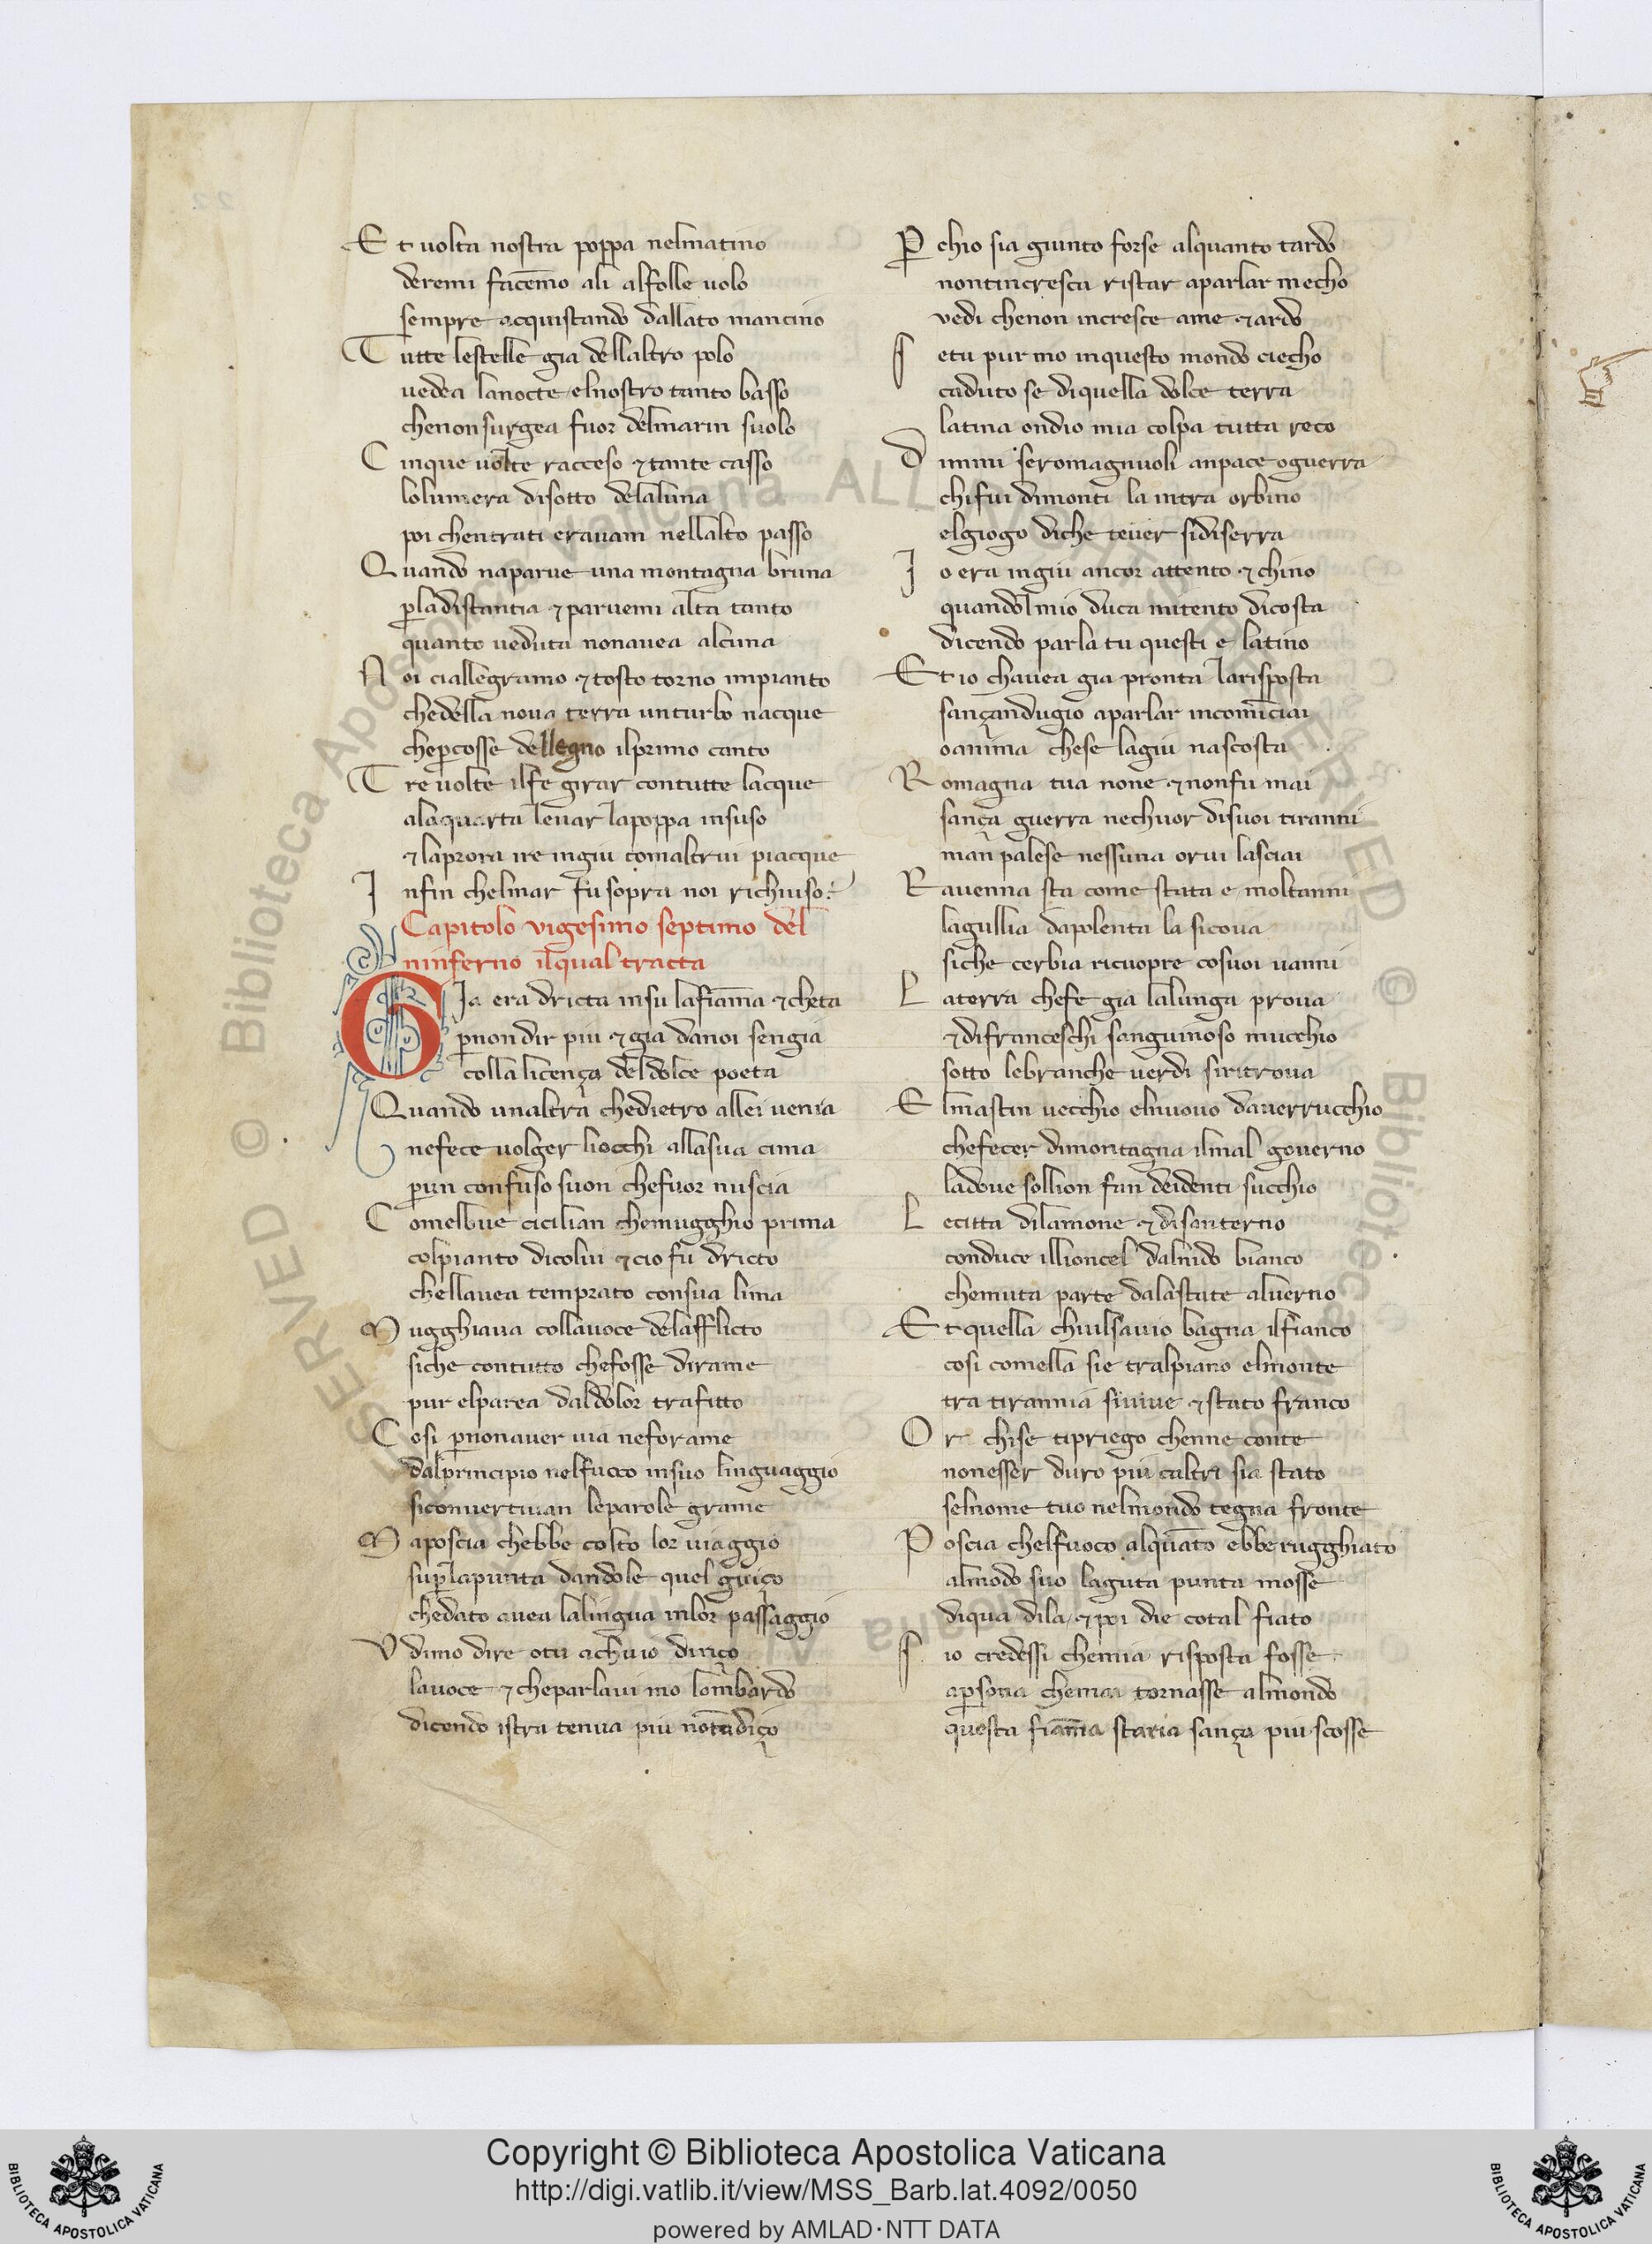 Et uolta nostra poppa nelmatino
deremi facem̄o ali alfolle uolo
sempre acquistando dallato mancino
Tutte lestelle gia dellaltro polo
uedea lanocte elnostro tanto basso
chenonsurgea fuor delmarin suolo
Cinque uolte racceso ⁊ tante casso
lolumera disotto delaluna
poi chentrati erauam nellalto passo
Quando naparue una montagna bruna
ꝑladistantia ⁊ paruemi alta tanto
quanto ueduta nonauea alcuna
Noi ciallegramo ⁊ tosto torno impianto
chedella noua terra unturbo nacque
cheꝑcosse dellegno ilprimo canto
Tre uolte ilfe girar contutte lacque
alaquarta leuar lapoppa insuso
⁊ laprora ire ingiu comaltrui piacque
Infin chelmar fu sopra noi richiuso
Capitolo vigesimo septimo del
ninferno ilqual tracta
GIa era dricta insu lafiam̄a ⁊ cheta
ꝑnondir piu ⁊ gia danoi sengia
colla licença deldolce poeta
Quando unaltra chedietro allei uenia
nefece uolger liocchi allasua cima
ꝑun confuso suon chefuor nuscia
Comelbue cicilian chemugghio prima
colpianto dicolui ⁊ cio fu dricto
chellauea temprato consua lima
Mugghiaua collauoce delafflicto
siche contutto chefosse dirame
pur elparea daldolor trafitto
Cosi ꝑnonauer uia neforame
dalprincipio nelfuoco insuo linguaggio
siconuertiuan leparole grame
Maposcia chebbe colto lor uiaggio
suꝑlapunta dandole quel guiço
chedato auea lalingua inlor passaggio
Vdimo dire otu achuio diriço
lauoce ⁊ cheparlaui mo lombardo
dicendo istra tenua piu nontadiço
Ꝑchio sia giunto forse alquanto tardo
nontincresca ristar aparlar mecho
vedi chenon incresce ame ⁊ ardo
Setu pur mo inquesto mondo ciecho
caduto se diquella dolce terra
latina ondio mia colpa tutta reco
Dimmi seromagnuoli anpace oguerra
chifui dimonti la intra orbino
elgiogo diche teuer sidiserra
Io era ingiu ancor attento ⁊ chino
quandolmio duca mitento dicosta
dicendo parla tu questi e latino
Et io chauea gia pronta larisposta
sançandugio aparlar incom̄ciai
oanima chese lagiu nascosta
Romagna tua none ⁊ nonfu mai
sança guerra nechuor disuoi tiranni
man palese nessuna orui lasciai
Rauenna sta come stata e moltanni
lagullia dapolenta la sicoua
siche cerbia ricuopre cosuoi uanni
Laterra chefe gia lalunga proua
⁊ difranceschi sanguinoso mucchio
sotto lebranche uerdi siritroua
Elmastin uecchio elnuouo dauerrucchio
chefecer dimontagna ilmal gouerno
ladoue sollion fan deidenti succhio
Lecitta dilamone ⁊ disanterno
conduce illioncel dalnido bianco
chemuta parte dalastate aluerno
Et quella chuilsauio bagna ilfianco
cosi comella sie tralpiano elmonte
tra tirannia siuiue ⁊ stato franco
Or chise tipriego chenne conte
nonesser duro piu caltri sia stato
selnome tuo nelmondo tegna fronte
Poscia chelfuoco alquāto ebbe rugghiato
almodo suo laguta punta mosse
diqua dila ⁊ poi die cotal fiato
Sio credessi chemia risposta fosse
aꝑsona chemai tornasse almondo
questa fiam̄a staria sança piu scosse
Copyright © Biblioteca Apostolica Vaticana
http://digi.vatlib.it/view/MSS_Barb.lat.4092/0050
powered by AMLAD·NTT DATA